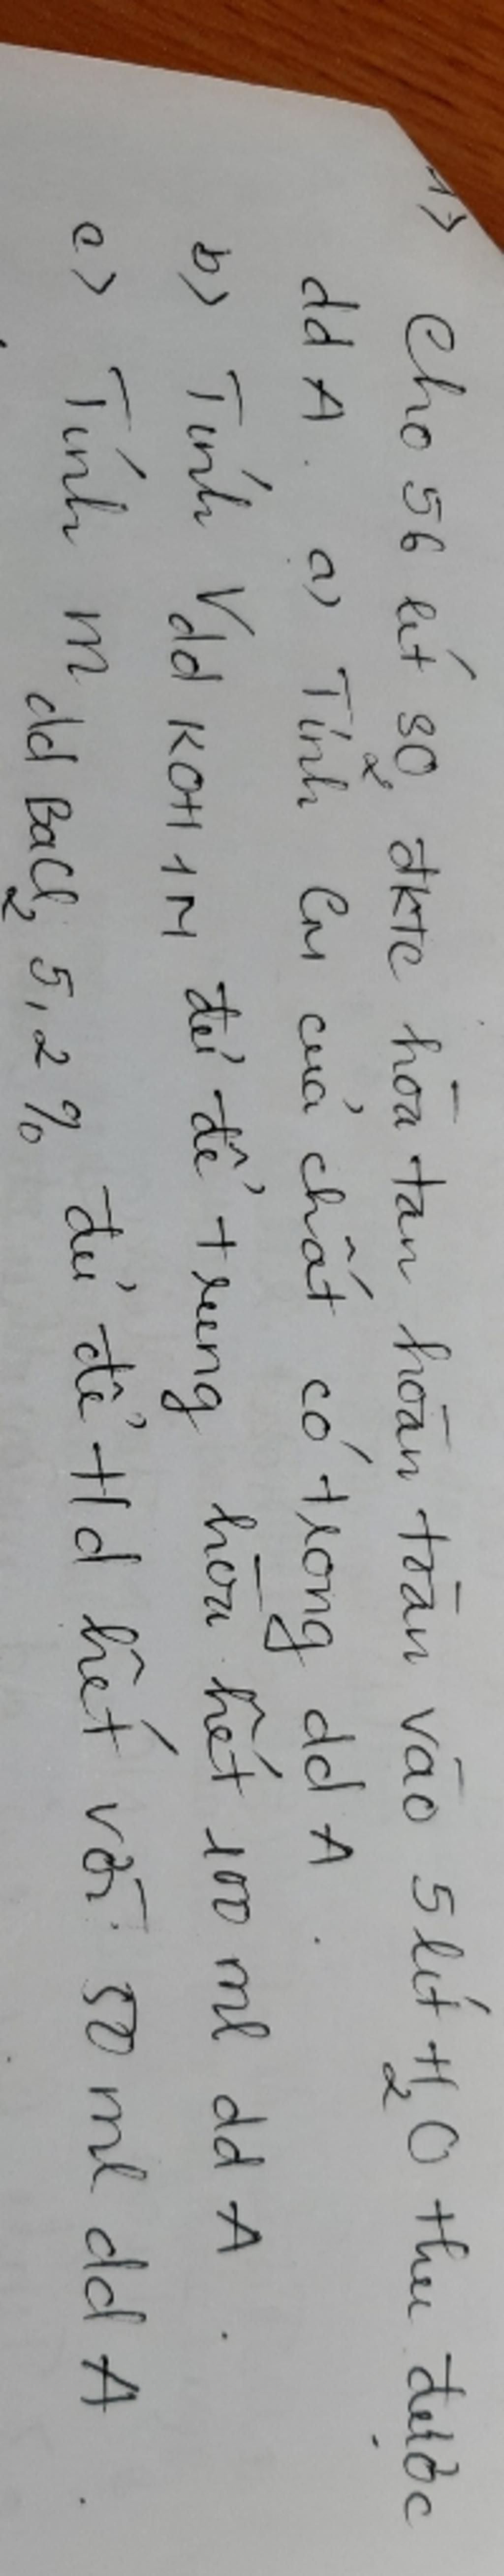 1> Cho 56 lít SO2 đktc hòa tan hoàn toàn vào 5 lít H2O thu được
dd A. a) Tính CM của chất có trong dd A.
b) Tính Vdd KOH 1M đủ để trung hòa hết 100 ml dd A.
c) Tính m dd BaCl2 5,2% đủ để t/d hết với 50 ml dd A.